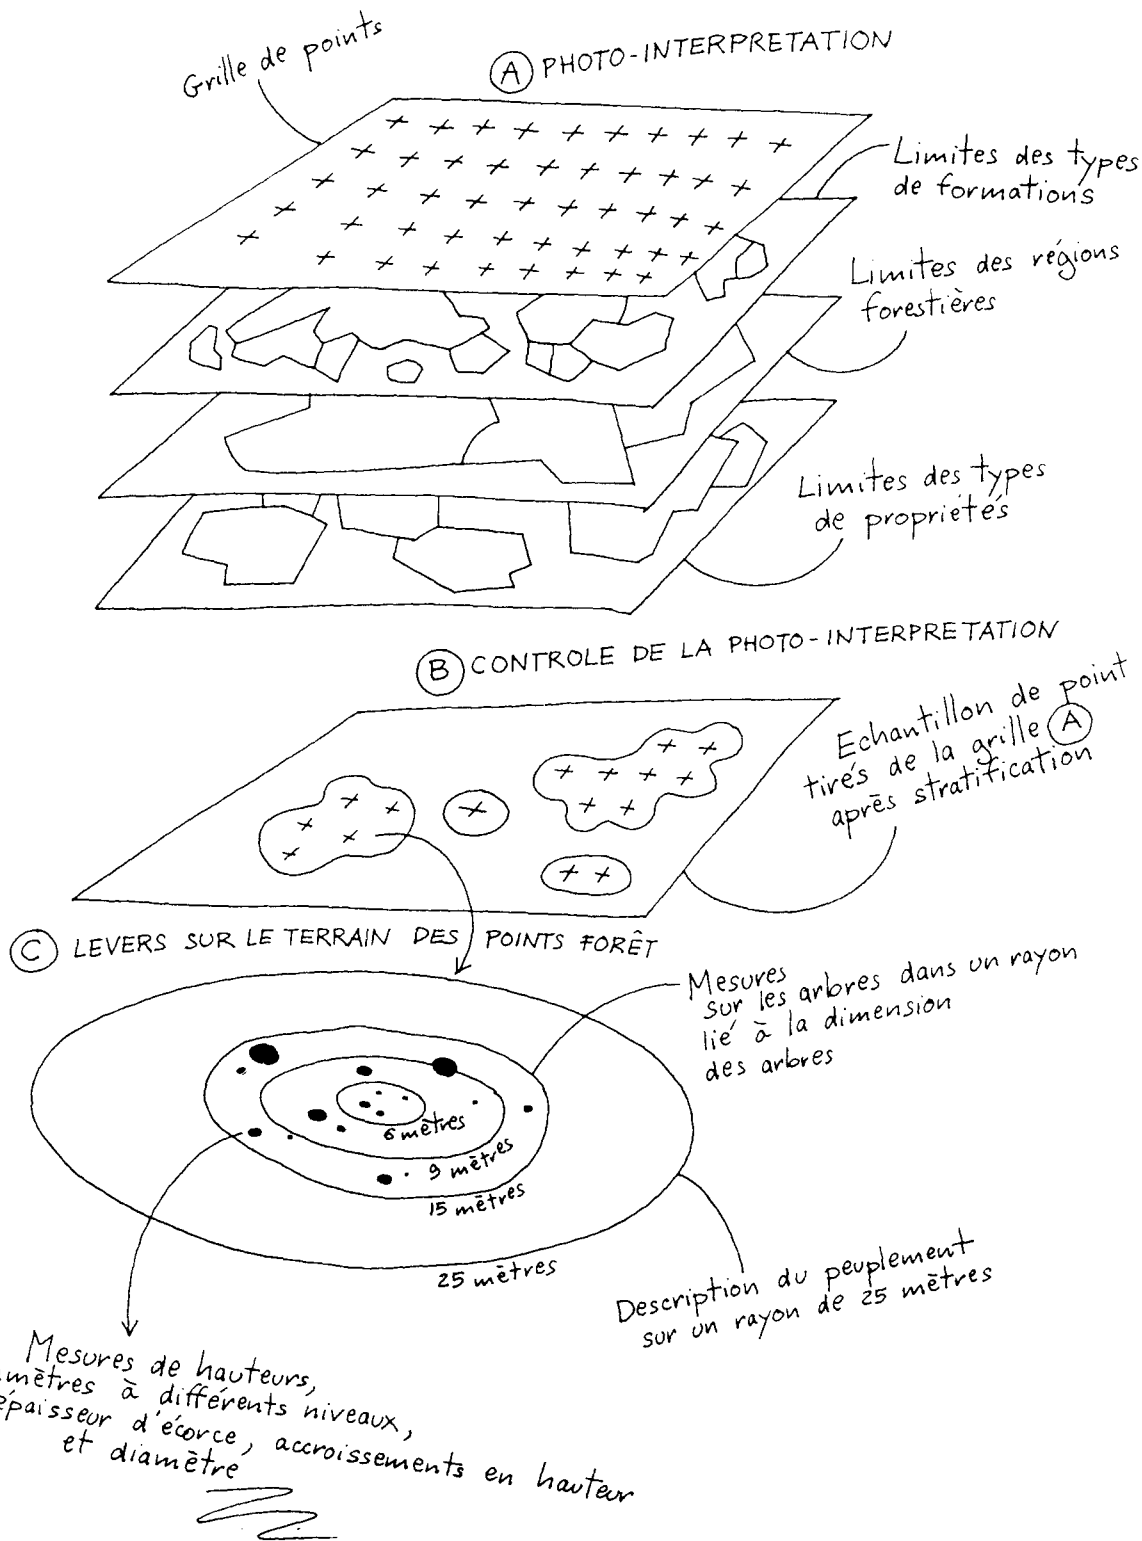 Grille de points
A PHOTO-INTERPRETATION
Limites des types
de formations
Limites des régions
forestières
Limites des types
de propriétés
B CONTROLE DE LA PHOTO-INTERPRETATION
Echantillon de point
tirés de la grille A
après stratification
C LEVERS SUR LE TERRAIN DES POINTS FORÊT
Mesures
sur les arbres dans un rayon
lié à la dimension
des arbres
6 mètres
9 mètres
15 mètres
25 mètres
Description du peuplement
sur un rayon de 25 mètres
Mesures de hauteurs,
mètres à différents niveaux,
épaisseur d'écorce, accroissements en hauteur
et diamètre